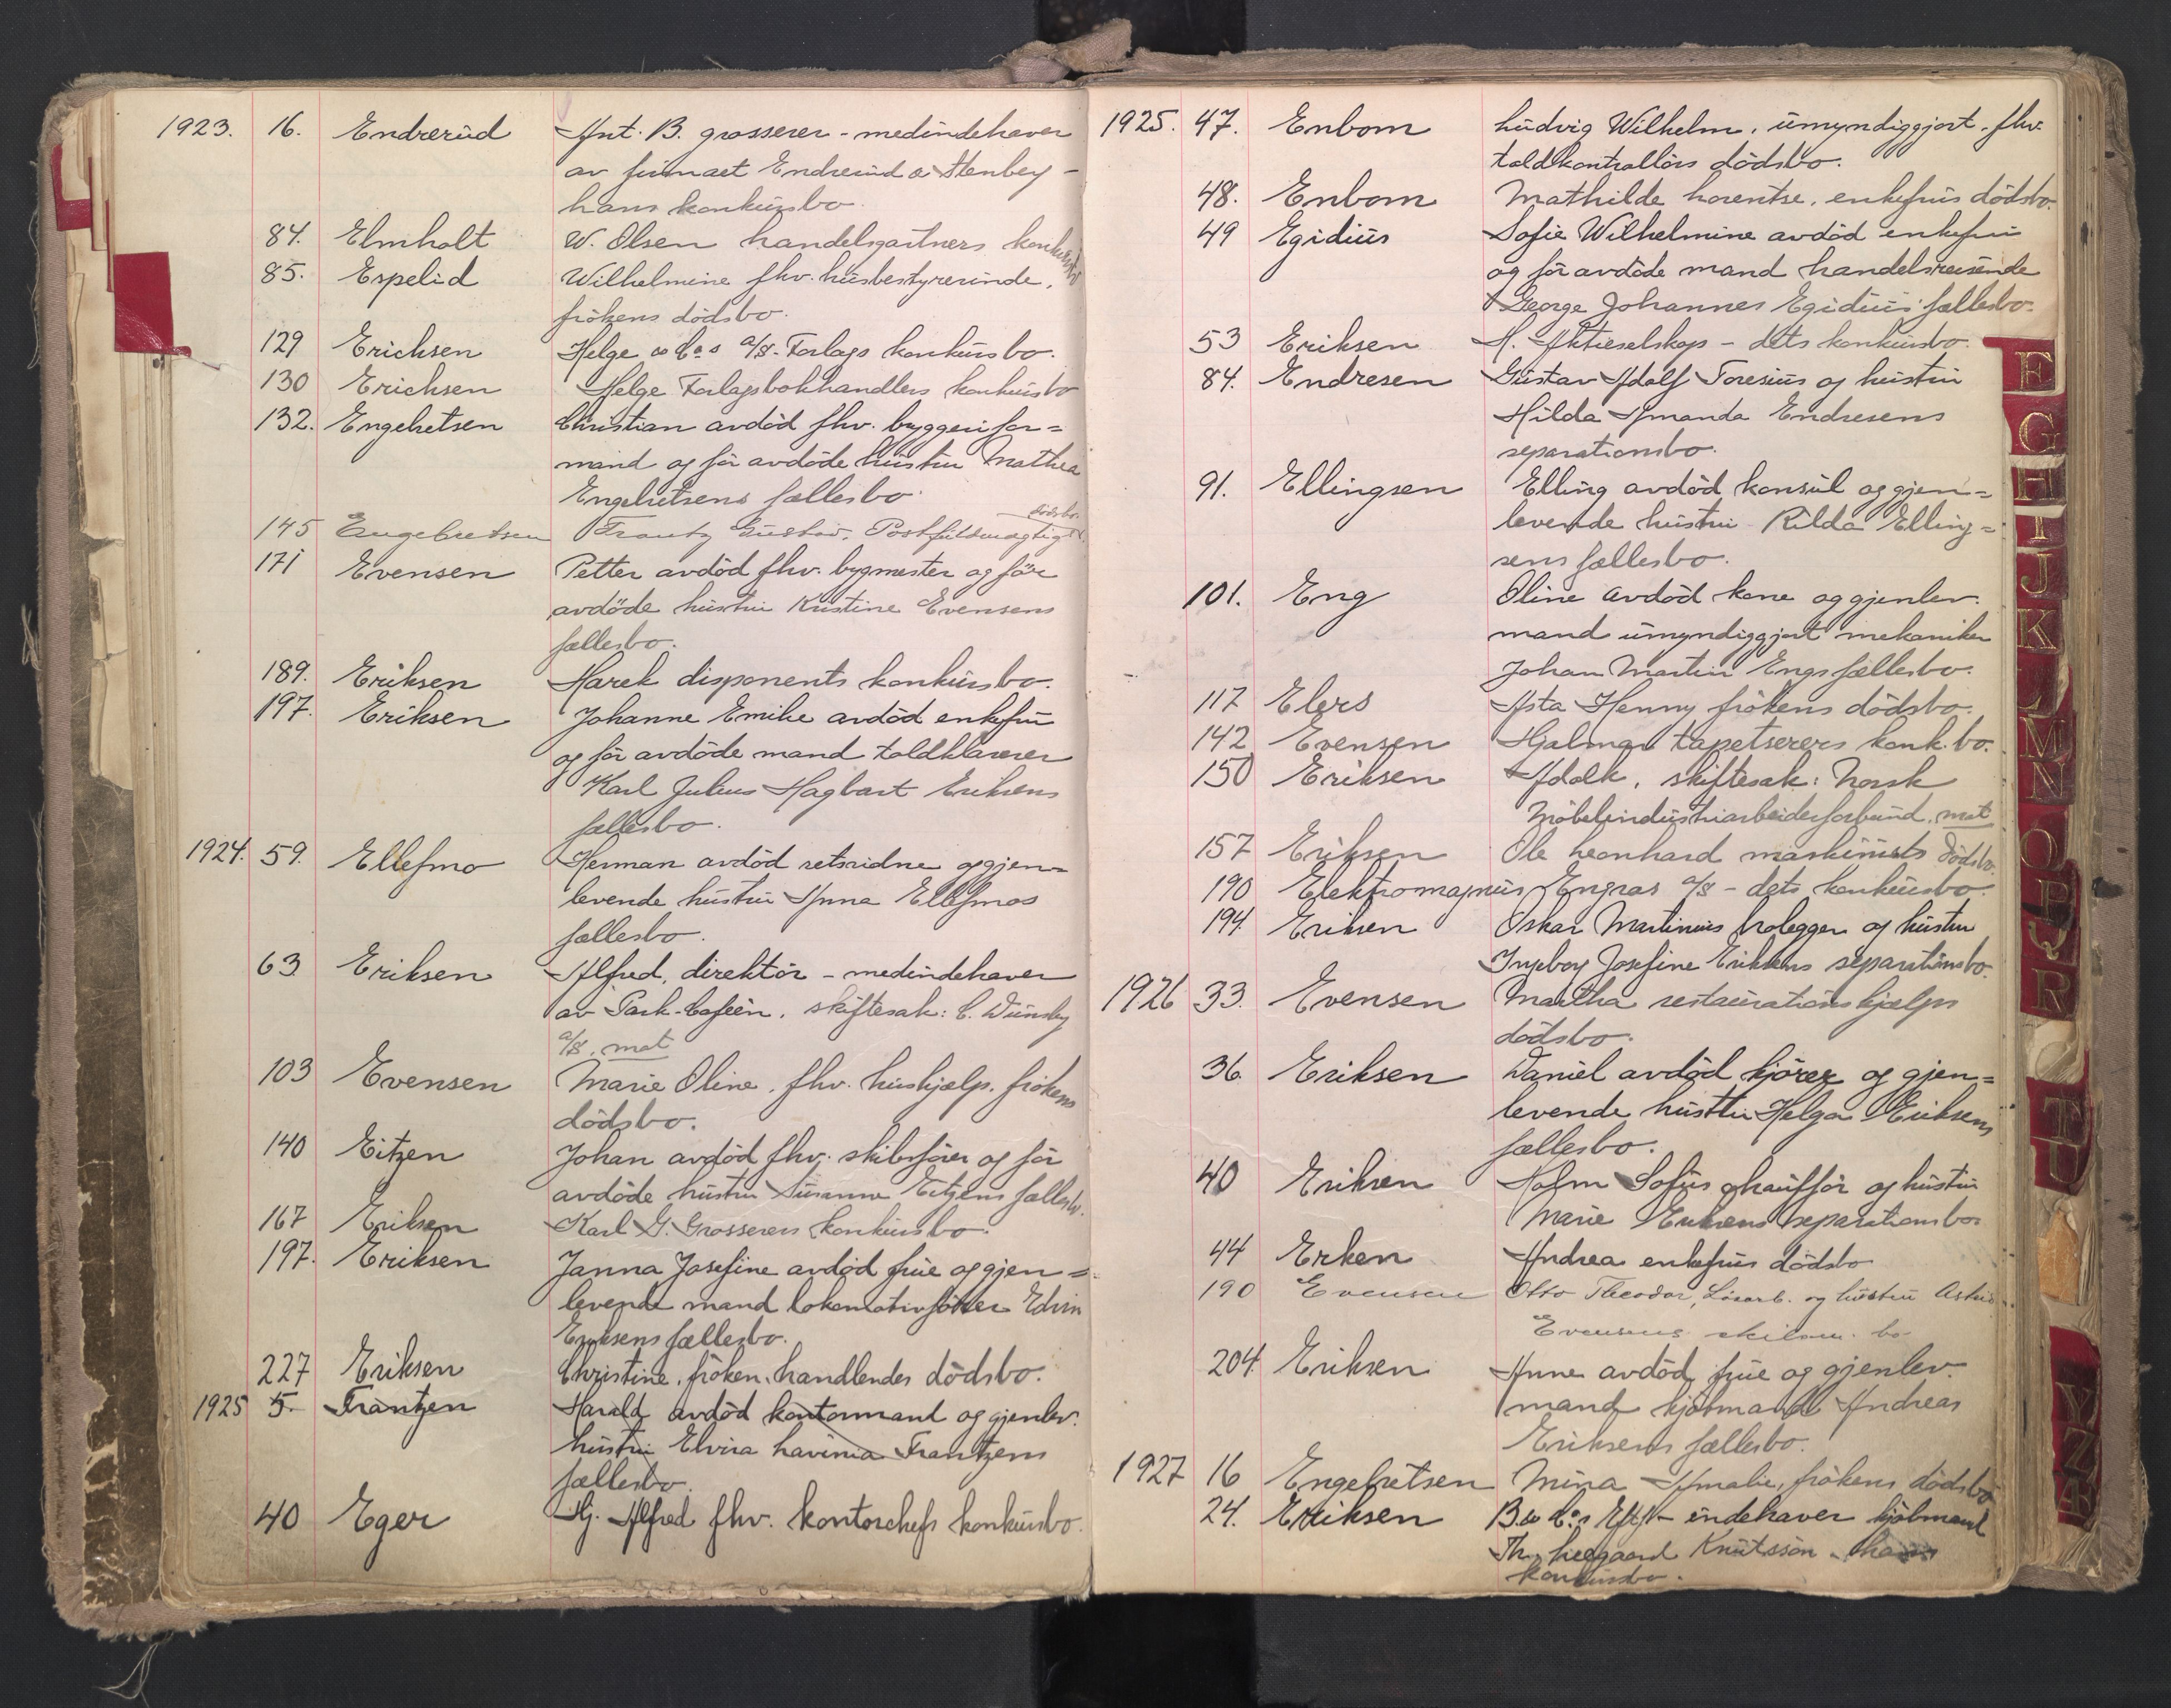 1923. 16. Endrerud Ant. B. grosserer - medindehaver
av firmaet Endrerud & Stenbey -
hans konkursbo
84. Elmholt W. Olsen handelsgartners konkursbo
85. Espelid Wilhelmine fhv. husbestyrerinde,
frökens dödsbo.
129 Erichsen Helge & Co's a/s. Forlags konkursbo.
130 Erichsen Helge Forlagsbokhandlers konkursbo
132. Engebretsen Christian avdöd fhv. byggerifor=
mand og för avdöde hustru Mathea
Engebretsens fællesbo.
145 Engebretsen Frantz Gustav, Postfuldmægtigs dödsbo.
171 Evensen Petter avdöd fhv. bygmester og för
avdöde hustru Kristine Evensens
fællesbo.
189. Eriksen Harek disponents konkursbo.
197. Eriksen Johanne Emilie avdöd enkefru
og för avdöde mand toldklarerer
Karl Julius Hagbart Eriksens
fællesbo.
1924. 59. Ellefmo Herman avdöd retsvidne og gjen=
levende hustru Anna Ellefmos
fællesbo.
63 Eriksen Alfred, direktör - medindehaver
av Park-Caféen, skiftesak: C.
a/s. mot
103 Evensen Marie Oline, fhv. hushjælp, frökens
dödsbo.
140 Eitzen Johan avdöd fhv. skibsförer og för
avdöde hustru Susanne Eitzens fællesbo.
167 Eriksen Karl G. Grosserers konkursbo.
197. Eriksen Janna Josefine avdöd frue og gjen=
levende mand lokomotivförer Edvin
Eriksens fællesbo.
227 Eriksen Christine, fröken, handlendes dödsbo.
1925 5. Frantzen Harald avdöd kontormand og gjenlev.
hustru Elvira Lavinia Frantzens
fællesbo.
40 Eger Hj. Alfred fhv. kontorchefs konkursbo.
1925. 47. Enbom Ludvig Wilhelm, umyndiggjort, fhv.
toldkontrollörs dödsbo.
48. Enbom Mathilde Lorentse, enkefrus dödsbo.
49 Egidius Sofie Wilhelmine avdöd enkefru
og för avdöde mand handelsreisende
George Johannes Egidius' fællesbo.
53 Eriksen A. Aktieselskap - dets konkursbo.
84. Endresen Gustav Adolf Toresius og hustru
Hilda Amanda Endresens
separationsbo.
91. Ellingsen Elling avdöd konsul og gjen=
levende hustru Rilda Elling=
sens fællesbo.
101. Eng Oline avdöd kone og gjenlev.
mand umyndiggjort mekaniker
Johan Martin Engs fællesbo.
117 Elers Asta Henny frökens dödsbo.
142 Evensen Hjalmar tapetserers konk.bo.
150 Eriksen Adolk, skiftesak: Norsk
Möbelindustriarbeiderforbund, mot
157 Eriksen Ole Leonhard maskinists dödsbo.
190 Elektromagnus Engros a/s - dets konkursbo.
194. Eriksen Oskar Martinius brolegger og hustru
Ingeborg Josefine Eriksens separationsbo.
1926 33. Evensen Martha restaurationshjælps
dödsbo.
36. Eriksen Daniel avdöd kjörer og gjen=
levende hustru Helga Eriksens
fællesbo.
40 Eriksen Holm Sofus chaufför og hustru
Marie Eriksens separationsbo
44 Erken Andrea enkefrus dödsbo
190 Evensen Otto Theodor, Lösarb. og hustru Astrid
Evensens skilsm. bo
204. Eriksen Anne avdöd frue og gjenlev.
mand kjöbmand Andreas
Eriksens fællesbo.
1927 16 Engebretsen Mina Amalie, frökens dödsbo
24. Eriksen B & Co's Eftf - indehaver kjöbmand
Th. Knutsson - hans
konkursbo.
E
G
H
I
J
K
L
M
N
O
P
Q
R
T
U
V
Z